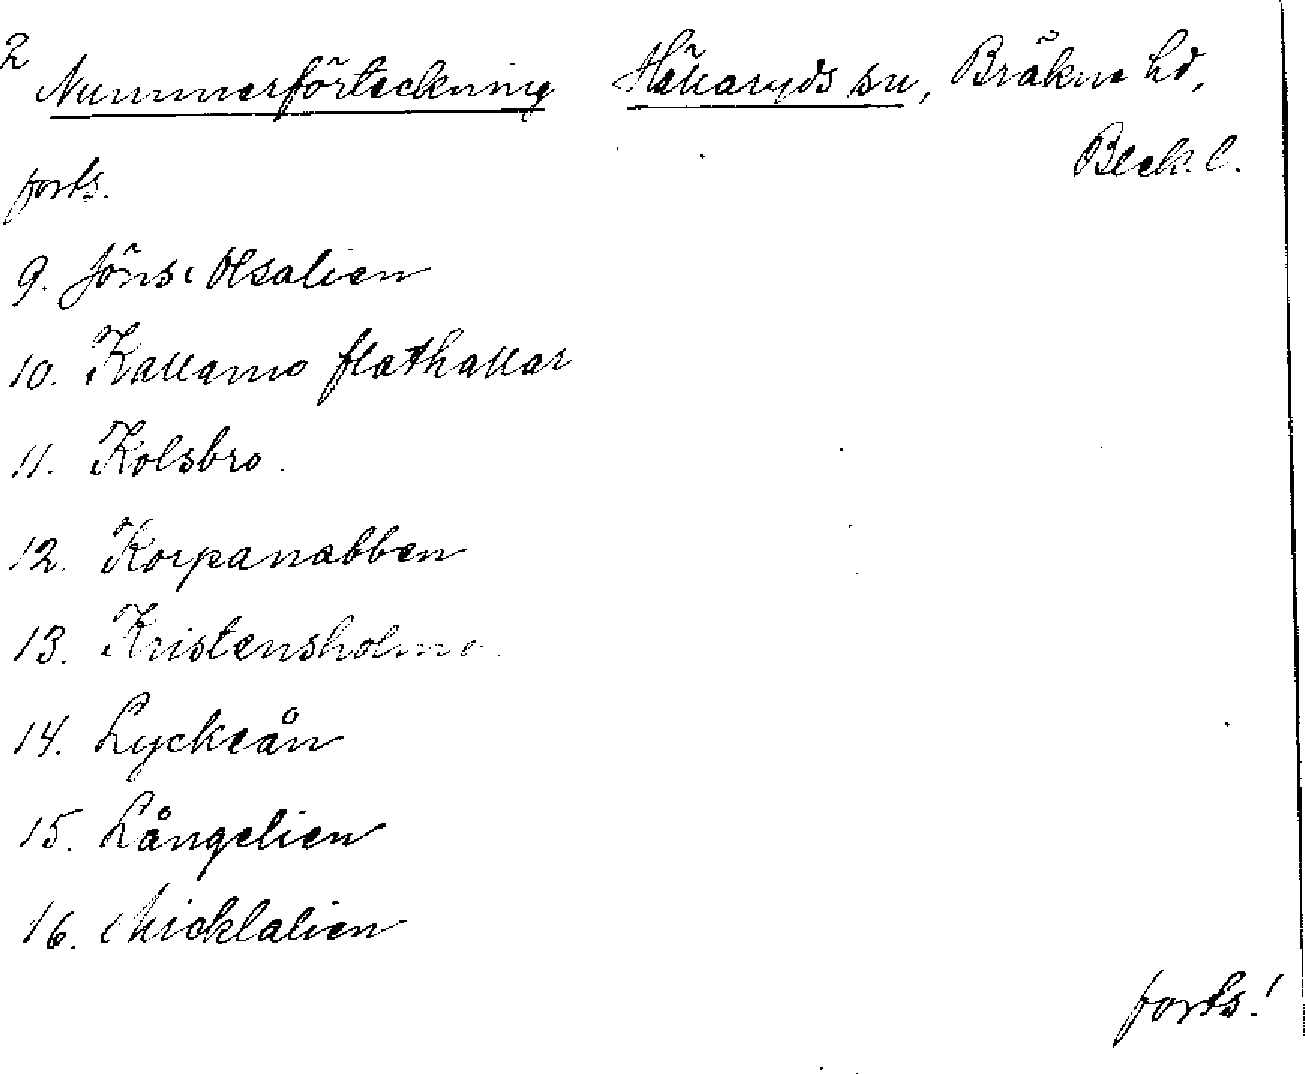 2
Nummerförteckning Hällaryds sn, Bräkne hd,
Bleck. l.
forts.
9. Jöns Olsalien
10. Kallamo flathallar
11. Kolsbro.
12. Korpanabben
13. Kristensholmo
14. Lyckeån
15. Långelien
16. Micklalien
forts.!